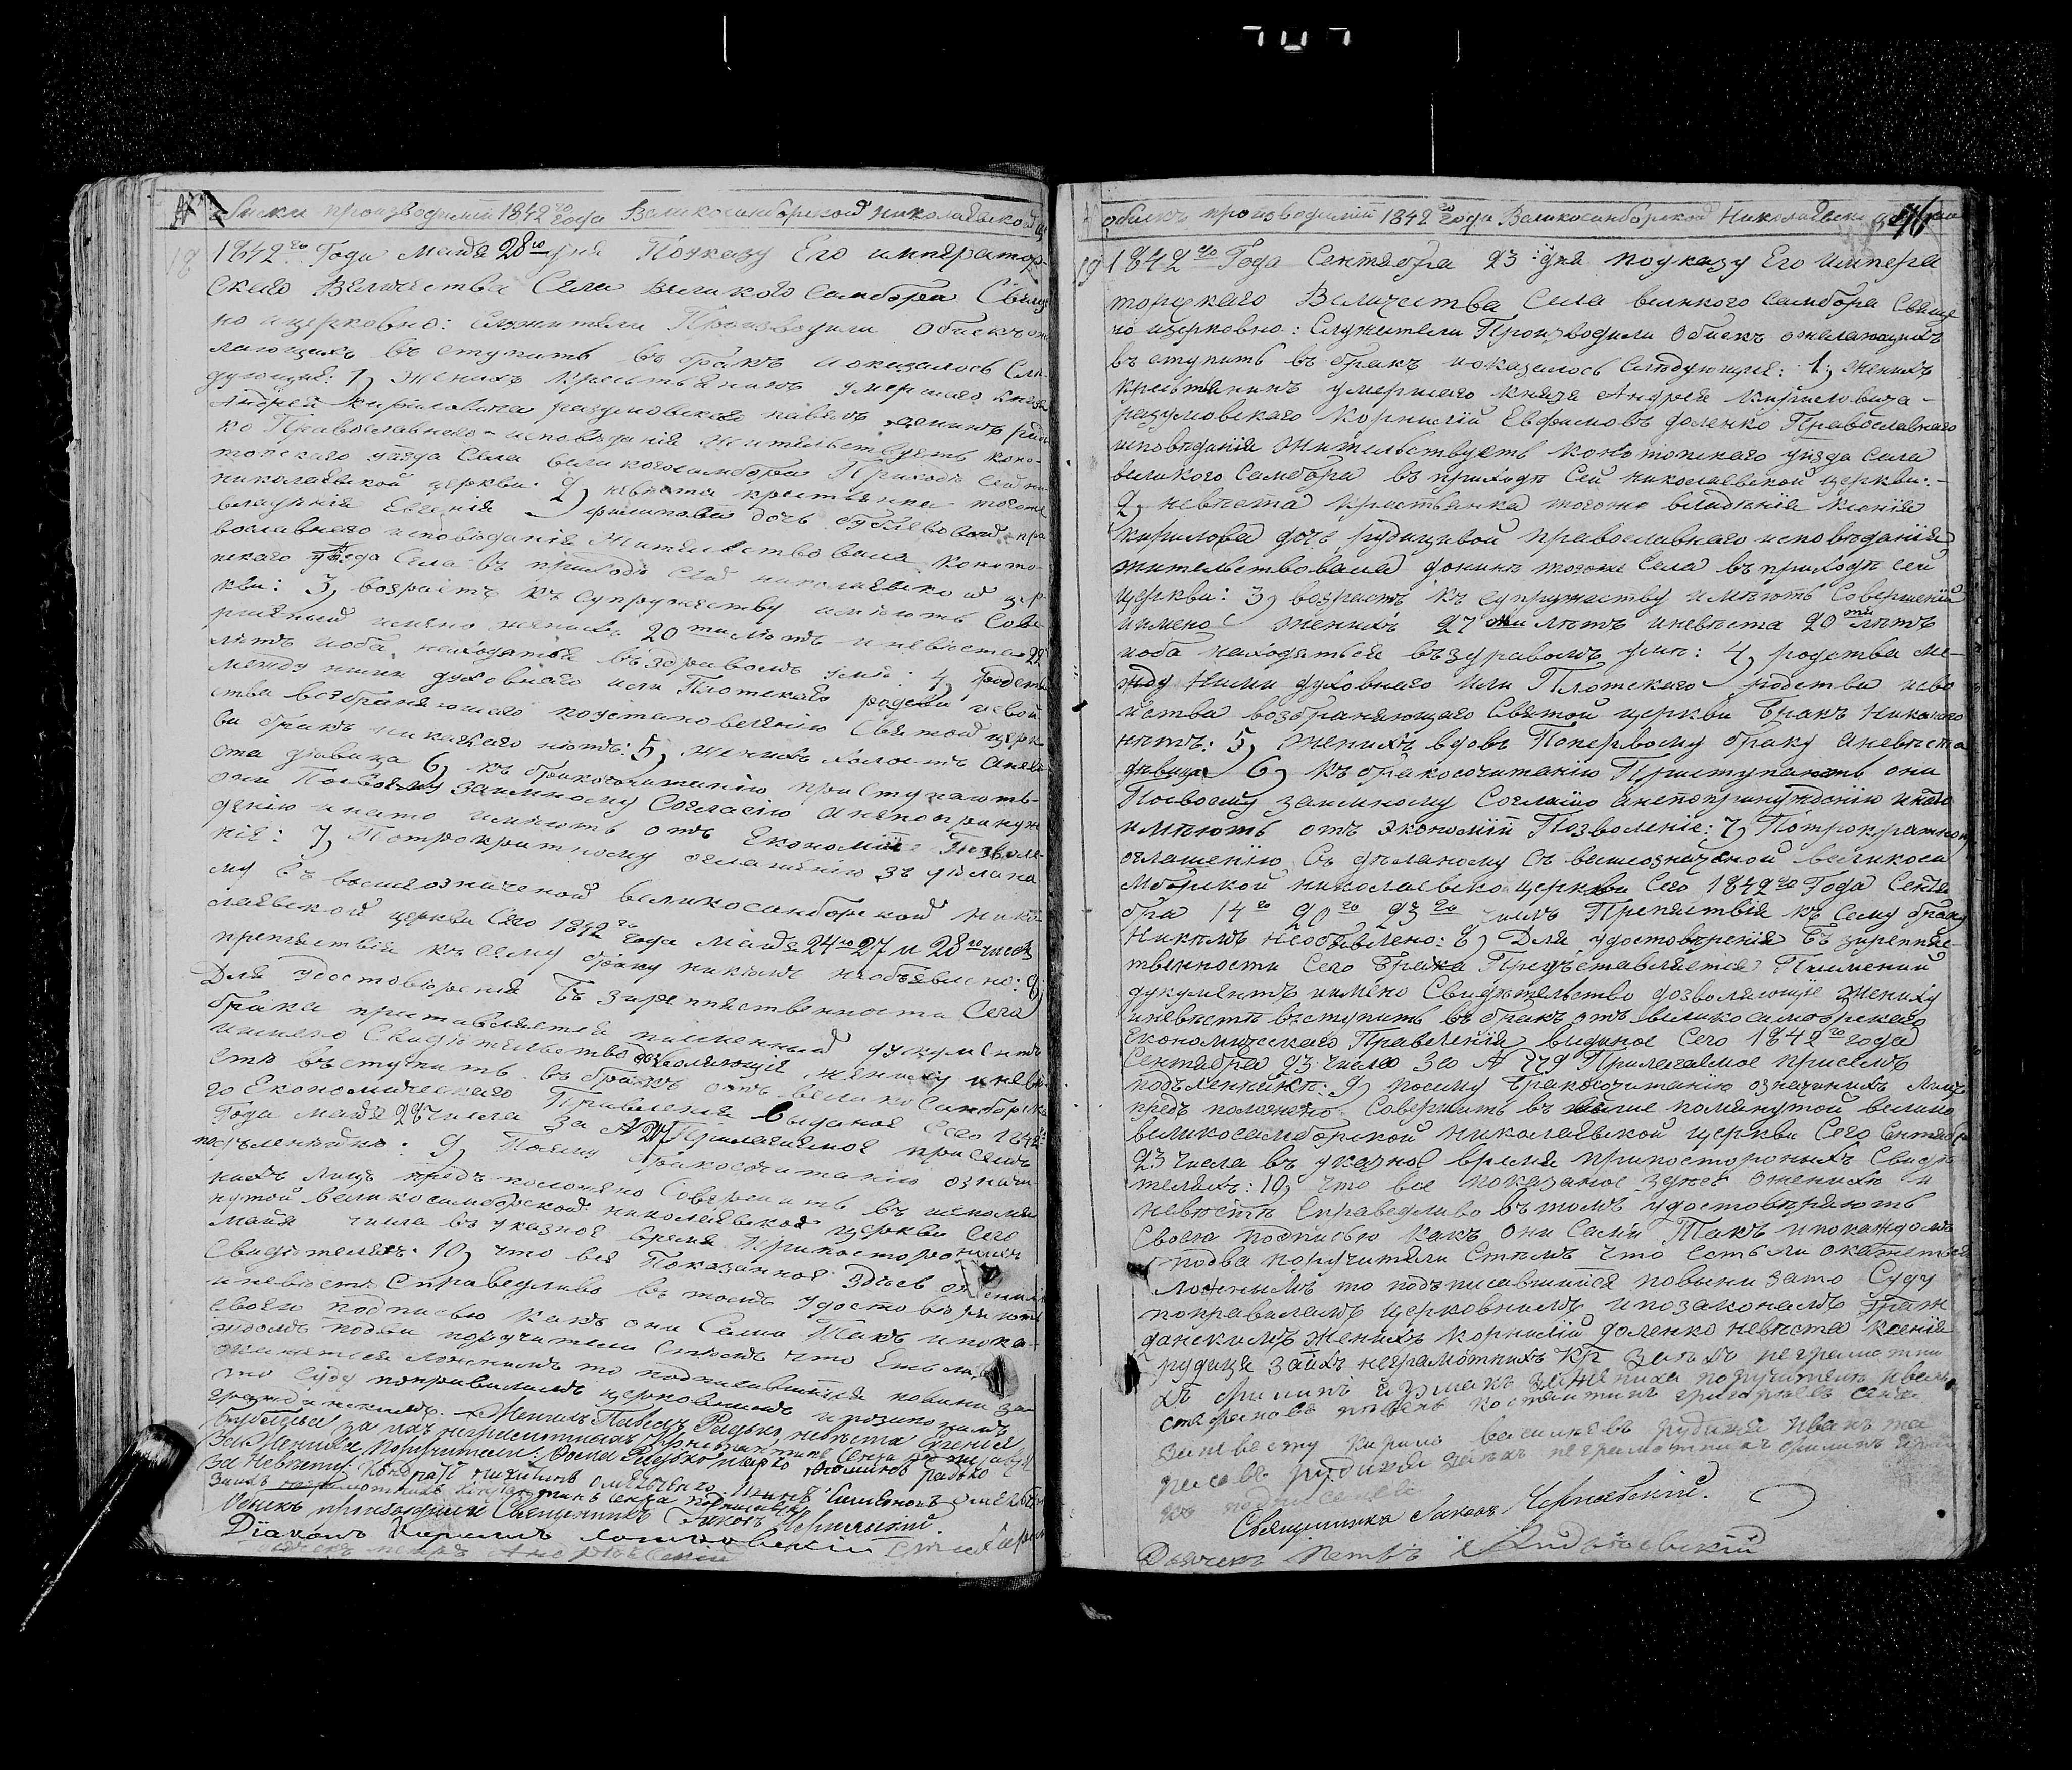 обиски производимій 1842го года Великосамборской Николаевской
18
1842го Года Мая 28го дня По указу Его император-
скаго Величества Села Великого Самбора Свящ
но и церковно: служители Производили Обискъ о же
лающихъ въступить въ бракъ и оказалось Слѣ-
дующие: 1, Женихъ крестьянинъ умершаго князя
Андрея Кириловича разумовскаго павелъ
ко Православного исповѣданія жительствуетъ коно-
топскаго уѣзда Села великогосамбора Приходъ сей ни
николаевской церкви: 2, невѣста крестьянка тогоже
владѣнія Евгенія филипова дочь пра
вославного исповѣданія жительствовала коното-
пскаго уѣзда Села въ приходѣ сей николаевской цер
кви: 3, возрастъ къ супружеству имѣютъ Сове
ршеный имено женихъ 20ти лѣтъ и невѣста 22
лѣтъ и оба находятся въ здравомъ умѣ: 4, родст
между ними духовнаго или Плотскаго родства и свой
ства возбраняющаго по установленію Святой церк
ви бракъ никакаго нѣтъ: 5, женихъ холостъ а невѣ
ста дѣвица 6, къ бракосочитанію приступаютъ
они По своему заимному Согласію а не по принуж
денію и на то имѣютъ отъ Економіи Позволе-
ніе: 7, По трократному оглашенію здѣлано
му въ вышеозначеной великосамборской нико
лаевской церкви Сего 1842го года Мая 24го 27 и 28го чиселъ
препятствія къ сему браку никѣмъ необъявлено: 8,
Для удостовѣренія безпрепятственности Сего
брака приставляется писменный документъ
имено Свидѣтельство дозволяющіе жениху и невѣ
стѣ въступить въ бракъ отъ великосамборска
го Економическаго Правленія выданое Сего 1842
Года мая 28 числа За № Прилагаемое при семъ
подъленникѣ: 9, Посему бракосочитанію означи
ныхъ лицъ предъположено Совершить въ
нутой великосамборской николаевской церкви Сего
мая числа въ указное время при постороннихъ
Свидѣтеляхъ: 10, что все Показанное здѣсь о женихѣ
и невѣстѣ Справедливо въ томъ удостовѣряютъ
своею подписью какъ они Сами Такъ и по ка-
ждомъ по два поручители Стѣмъ что Естьли
окажется ложнымъ то подписавшійся повини за
то Суду по правиламъ церковнымъ и по законамъ
гражданскимъ. Женихъ Павелъ Радько, невѣста Евгенія
за ихъ неграмотныхъ Константинъ Сенча
За Жениха Поручители: Радько Радько
За Невѣсту:
неграмотныхъ Константинъ Сенча подписался
Обискъ производили Священникъ Іаковъ Чернявскій.
Діаконъ Кирилъ
Дьячекъ петръ
обискъ производимій 1842го года Великосамборской Николаевск
46
19
1842го Года Сентября 23 дня по указу Его Импера
торскаго Величества Села великого Самбора Свяще
но и церковно: Служители Производили Обискъ о желающихъ
въступить въ бракъ и оказалось Слѣдующіе: 1, женихъ
крестьянинъ умершаго князя Андрея Кириловича-
разумовскаго Корнилій Евфимовъ доленко Православнаго
исповѣданія Жительствуетъ конотопскаго уѣзда села
великого Самбора въ приходѣ Сей николаевской церкви:-
2, невѣста крестьянка тогоже владѣнія ксенія
кирилова дочь рудицивой православнаго исповѣданія
жительствовала донинѣ тогоже Села въ приходѣ сей
церкви: 3, возрастъ къ супружеству имѣютъ Совершеній
имено женихъ 27ми лѣтъ и невѣста 20ти лѣтъ
и оба находяться въ здравомъ умѣ: 4, родства ме-
жду Ними духовнаго или Плотскаго родства и сво
йства возбраняющаго Святой церкви Бракъ Никакаго
нѣтъ: 5, Женихъ вдовъ По первому браку а невѣста
дѣвица 6, къ бракосочитанію Приступаютъ они
По своему заимному Согласію а не по принужденію и на то
имѣютъ отъ экономіи Позволеніе: 7, По трократном
оглашенію въ дѣланому въ вышеозначеной великоса
мборской николаевско церкви Сего 1842го Года Сентя
бра 14го 20го 23го чиселъ Препятствія къ Сему браку
Никѣмъ необъявлено: 8, Для удостовѣренія безпрепятс-
твенности Сего Брака Предъставляется Писмений
документъ имено Свидѣтельство дозволяющіе жениху
и невѣстѣ въступить въ бракъ отъ великосамборскаго
Економическаго Правленія выданое Сего 1842го года
Сентября 23 число За № 779 Прилагаемое при семъ
подъленникѣ: 9, посему Бракосочитанію означиныхъ лицъ
предъ положено Совершить въ выше помянутой велико
великосамборской николаевской церкви Сего Сентябр
23 числа въ указное время при постороныхъ Свидѣ-
теляхъ: 10, что все показаное здѣсь о женихѣ и
невѣстѣ Справедливо въ томъ удостовѣряютъ
Своею подписью какъ они Сами Такъ и по каждомъ
по два поручители Стѣмъ что Естьли окажеться
ложнымъ то подъписавшийся повини за то Суду
по правиламъ церковнымъ и по законамъ граж
данскимъ Женихъ Корнилій доленко невѣста ксенія
рудиця За ихъ неграмотныхъ неграмотни
хъ филипъ За жениха поручители Иванъ
константинъ григорьевъ сенча
за невесту Кирилъ васильевъ рудиця Иванъ
рудиця за ихъ неграмотнихъ филипъ
подписался
Священникъ Іаковъ Чернявскій.
Дьячекъ Петръ